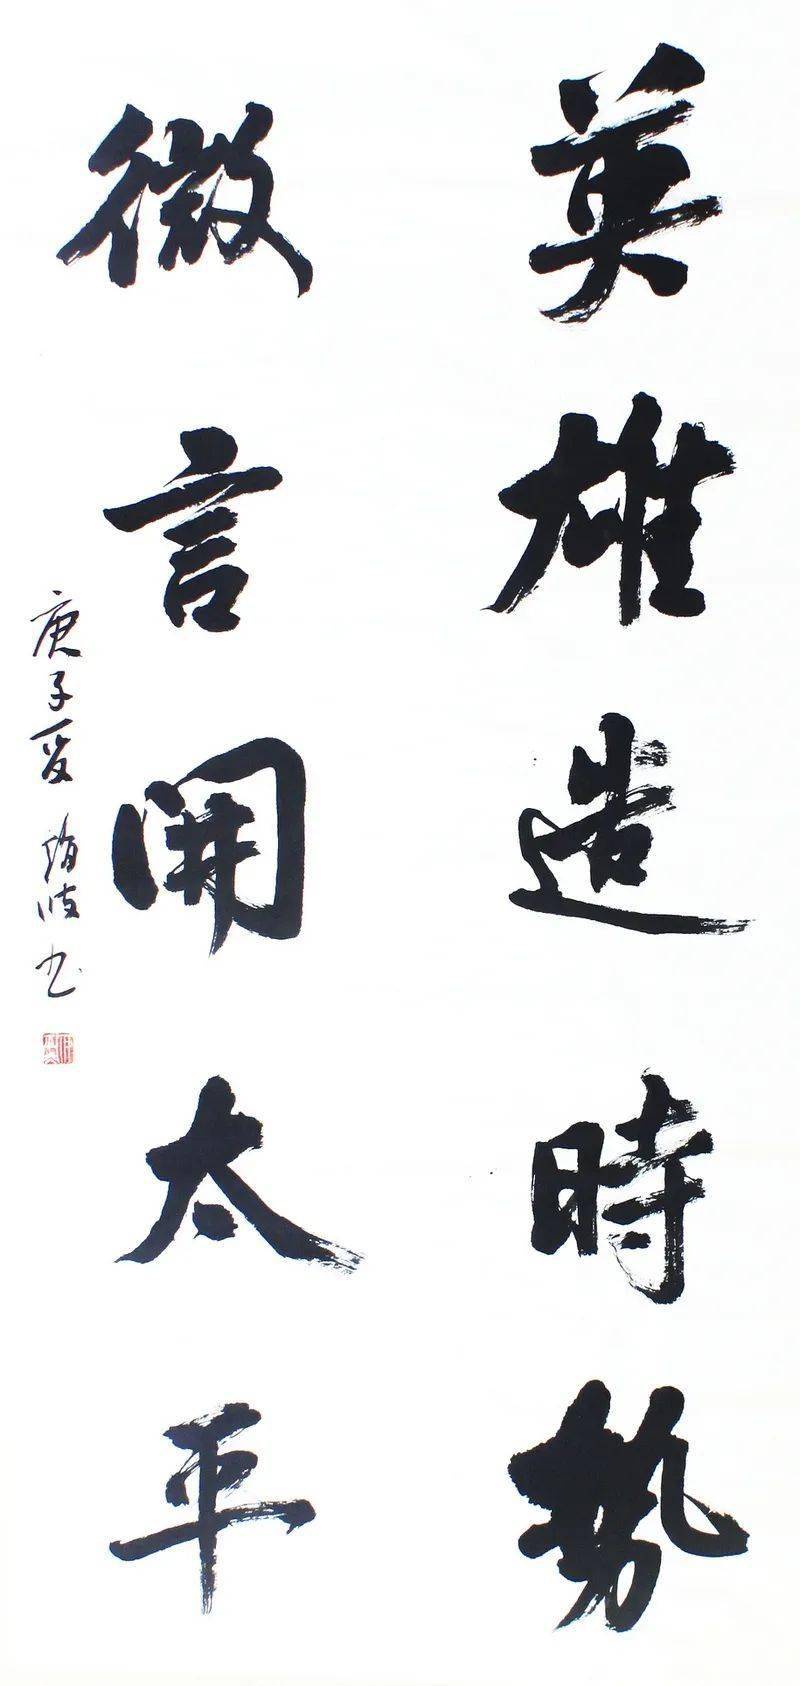 英雄造時勢
微言開太平
庚子夏 海波书